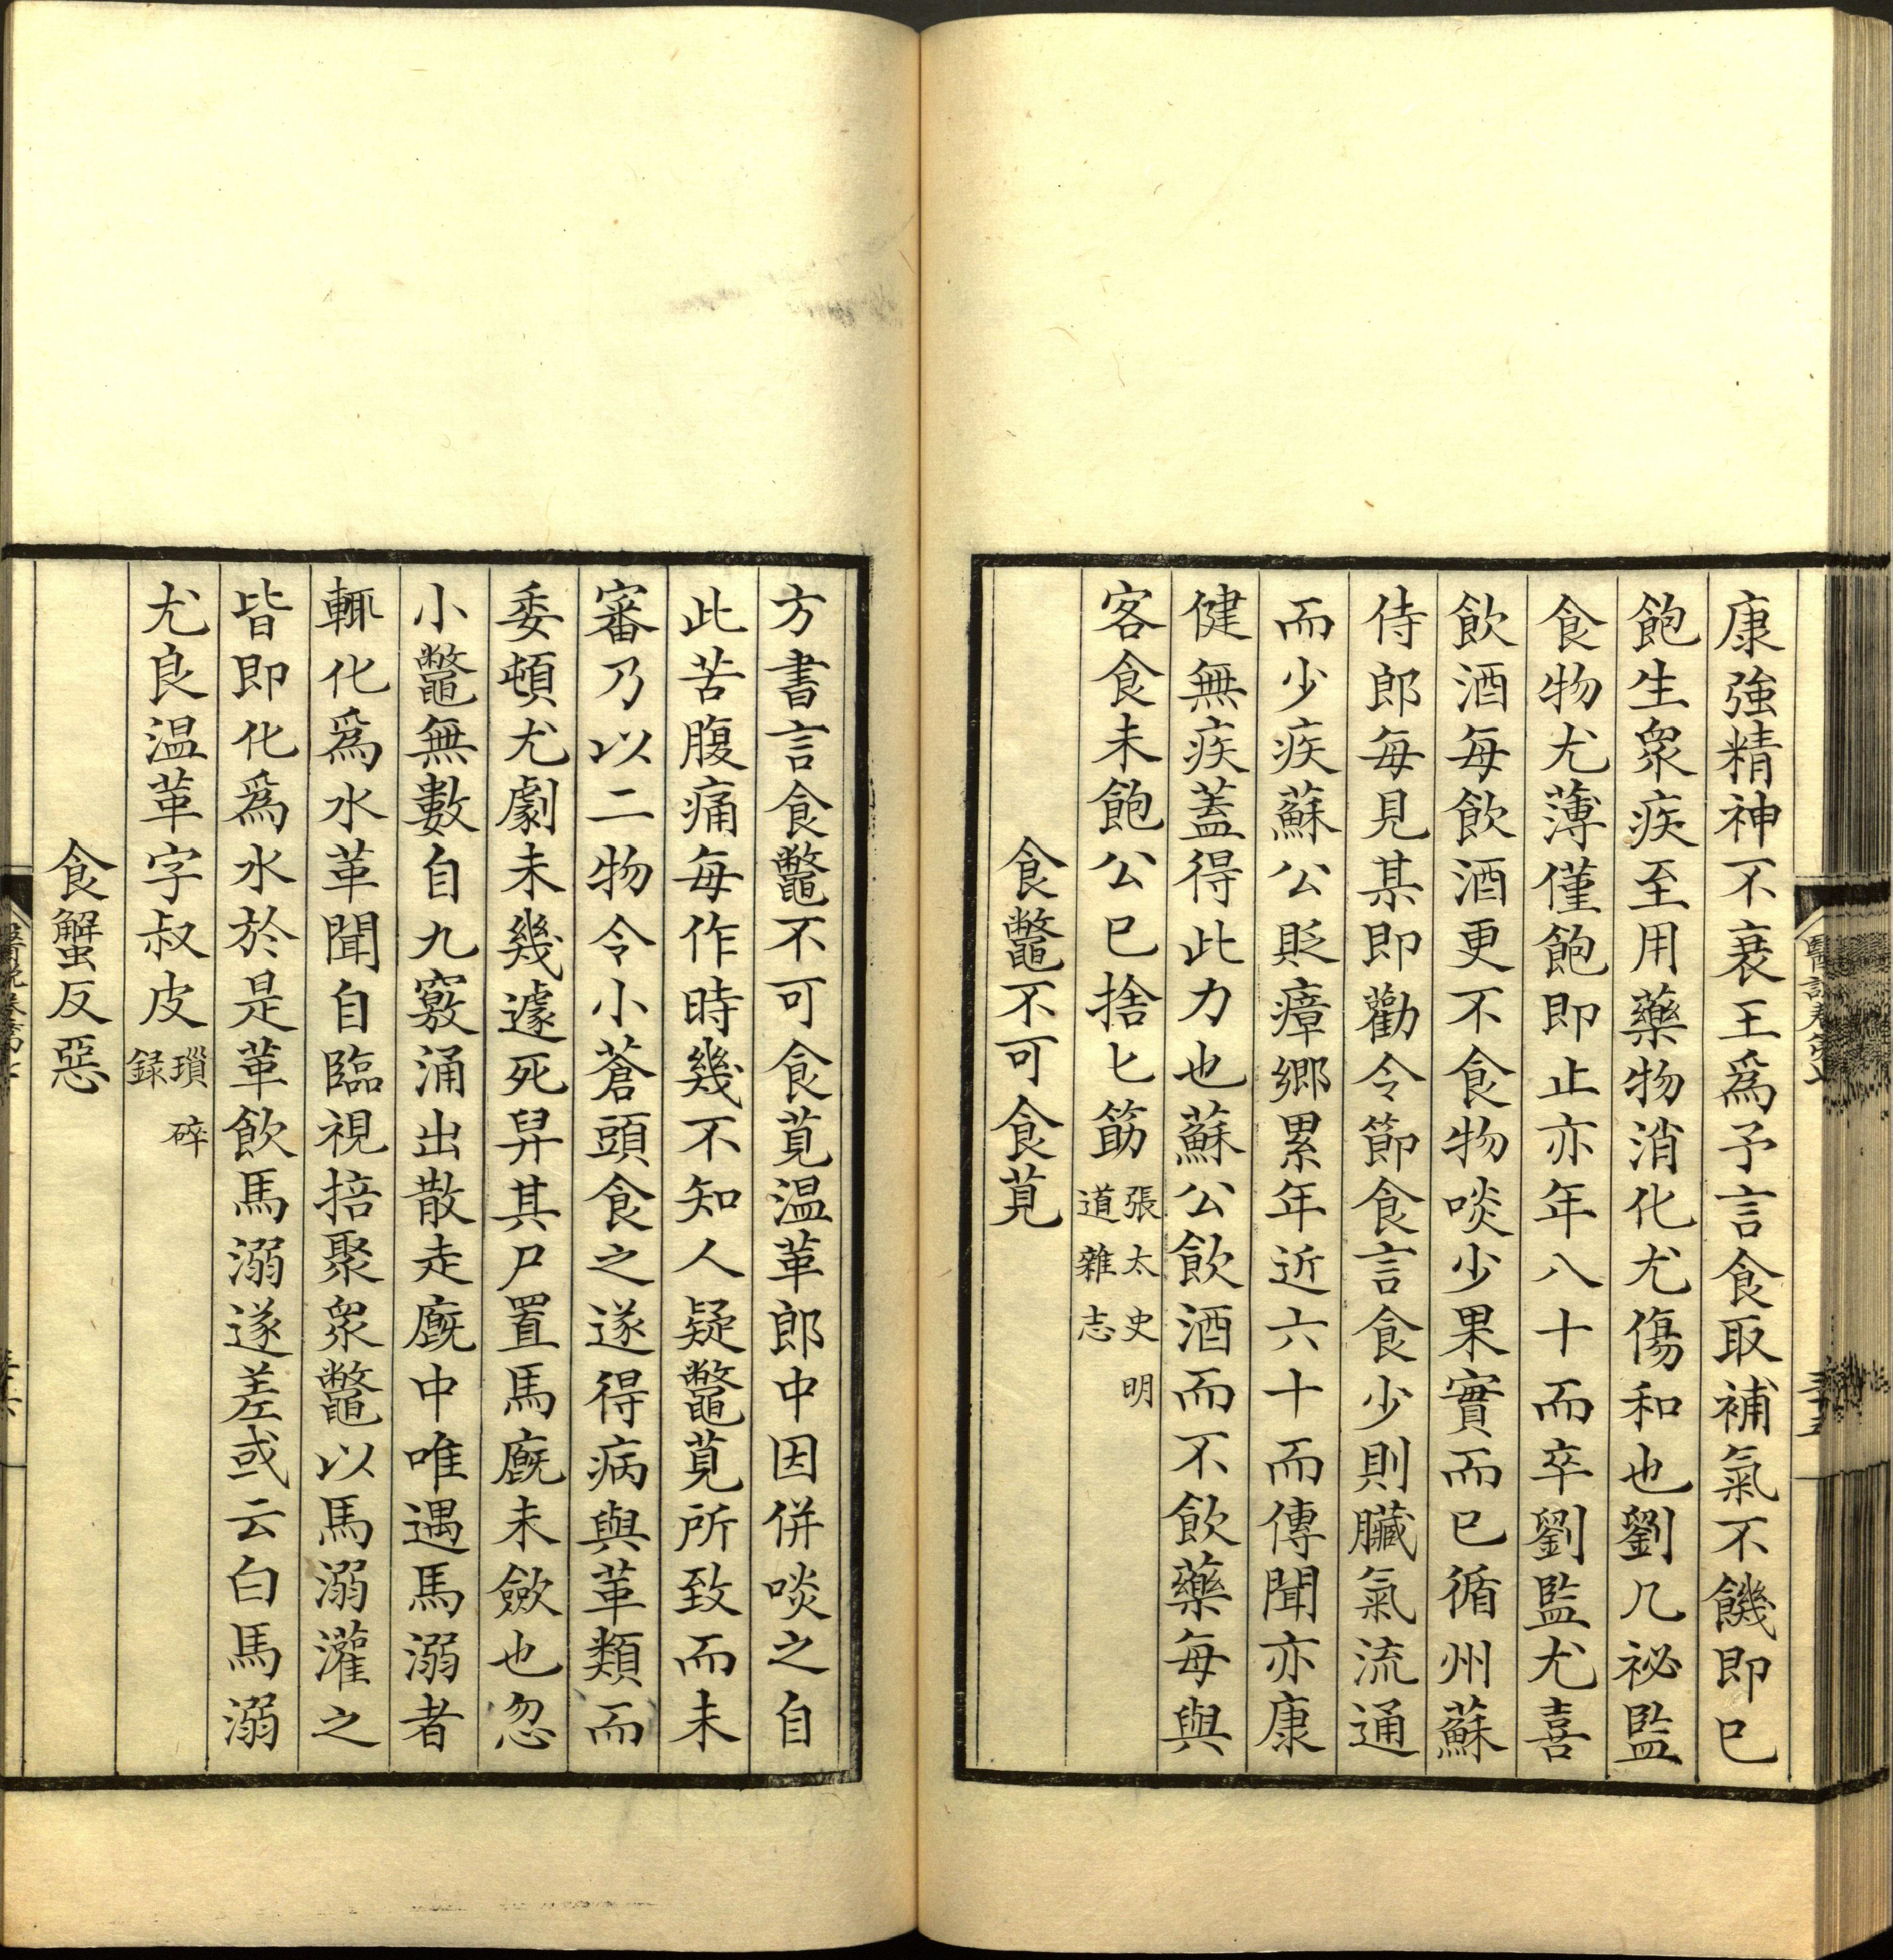 康強精神不衰王爲予言食取補氣不饑即已
飽生衆疾至用藥物消化尤傷和也劉几祕監
食物尤薄僅飽即止亦年八十而卒劉監尤喜
飲酒每飲酒更不食物啖少果實而已循州蘇
侍郎每見某即勸令節食言食少則臟氣流通
而少疾蘇公貶瘴鄉累年近六十而傳聞亦康
健無疾蓋得此力也蘇公飲酒而不飲藥每與
客食未飽公已捨匕筯張太史明道雜志
食鼈不可食莧
方書言食鼈不可食莧温革郎中因併啖之自
此苦腹痛每作時幾不知人疑鼈莧所致而未
審乃以二物令小蒼頭食之遂得病與革類而
委頓尤劇未幾遽死舁其尸置馬廐未斂也忽
小鼈無數自九竅涌出散走廐中唯遇馬溺者
輒化爲水革聞自臨視掊聚衆鼈以馬溺灌之
皆即化爲水於是革飲馬溺遂差或云白馬溺
尤良温革字叔皮瑣碎録
食蟹反惡